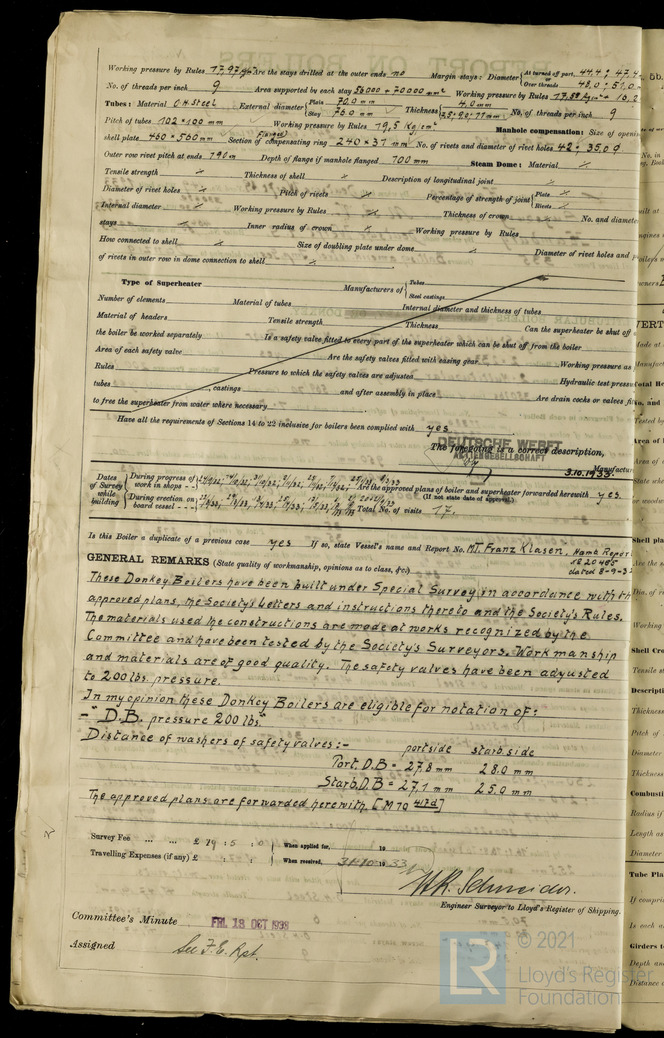 Working pressure by Rules 17,97 Are the stays drilled at the outer ends no Margin stays: Diameter { At turned off part, 44,4 ; 47,4
or Over threads 48,0 ; 51,0
No. of threads per inch 9 Area supported by each stay 56000 + 70000 mm² Working pressure by Rules
Tubes: Material O H steel External diameter { Plain 70,0 mm Stay 76,0 mm Thickness { 4,0 mm No. of threads per inch 9
Pitch of tubes 102 × 100 mm Working pressure by Rules 19,5 Kg/cm² Manhole compensation: Size of openi
shell plate 460 × 560 mm Section of compensating ring Flanged 240 × 37 mm² No. of rivets and diameter of rivet holes 42 ; 35,0
Outer row rivet pitch at ends 190 m Depth of flange if manhole flanged 700 mm Steam Dome: Material ×
Tensile strength × Thickness of shell × Description of longitudinal joint ×
Diameter of rivet holes × Pitch of rivets × Percentage of strength of joint { Plate × Rivets ×
Internal diameter × Working pressure by Rules × Thickness of crown × No. and diamete
stays × Inner radius of crown × Working pressure by Rules
How connected to shell × Size of doubling plate under dome × Diameter of rivet holes and P
of rivets in outer row in dome connection to shell ×
Type of Superheater Manufacturers of { Tubes Steel castings
Number of elements Material of tubes Internal diameter and thickness of tubes
Material of headers Tensile strength Thickness Can the superheater be shut off
the boiler be worked separately Is a safety valve fitted to every part of the superheater which can be shut off from the boiler
Area of each safety valve Are the safety valves fitted with easing gear Working pressure as
Rules Pressure to which the safety valves are adjusted Hydraulic test press
tubes , castings and after assembly in place Are drain cocks or valves fi
to free the superheater from water where necessary
Have all the requirements of Sections 14 to 22 inclusive for boilers been complied with yes
DEUTSCHE WERFT
The foregoing is a correct description,
AKTIENGESELLSCHAFT
3.10.1933. Manufactur
Dates of Survey while building { During progress of work in shops - - Are the approved plans of boiler and superheater forwarded herewith yes.
(If not state date of approval.)
During erection on board vessel - - - Total No. of visits 17.
Is this Boiler a duplicate of a previous case yes If so, state Vessel's name and Report No. MT. Franz Klasen, Hamb Repor
No 20485
dated 8-9-3
GENERAL REMARKS (State quality of workmanship, opinions as to class, &c.)
These Donkey Boilers have been built under Special Survey in accordance with th
approved plans, the Society's Letters and instructions thereto and the Society's Rules.
The materials used the constructions are made at works recognized by the
Committee and have been tested by the Society's Surveyors. Workmanship
and materials are of good quality. The safety valves have been adjusted
to 200 lbs. pressure.
In my opinion these Donkey Boilers are eligible for notation of:
-"D.B. pressure 200 lbs."
Distance of washers of safety valves :- portside starb. side
Port. D.B = 27,8 mm 28.0 mm
Starb. D.B = 27,7 mm 25.0 mm
The approved plans are forwarded herewith.
Survey Fee ... ... £ 79 : 5 : 0 When applied for, 19
Travelling Expenses (if any) £ : : When received, 31-10-1933
W.R. Schneider.
Engineer Surveyor to Lloyd's Register of Shipping.
Committee's Minute FRI. 13 OCT 1933
Assigned See F.E. Rpt.
© 2021
LR
Lloyd's Register
Foundation